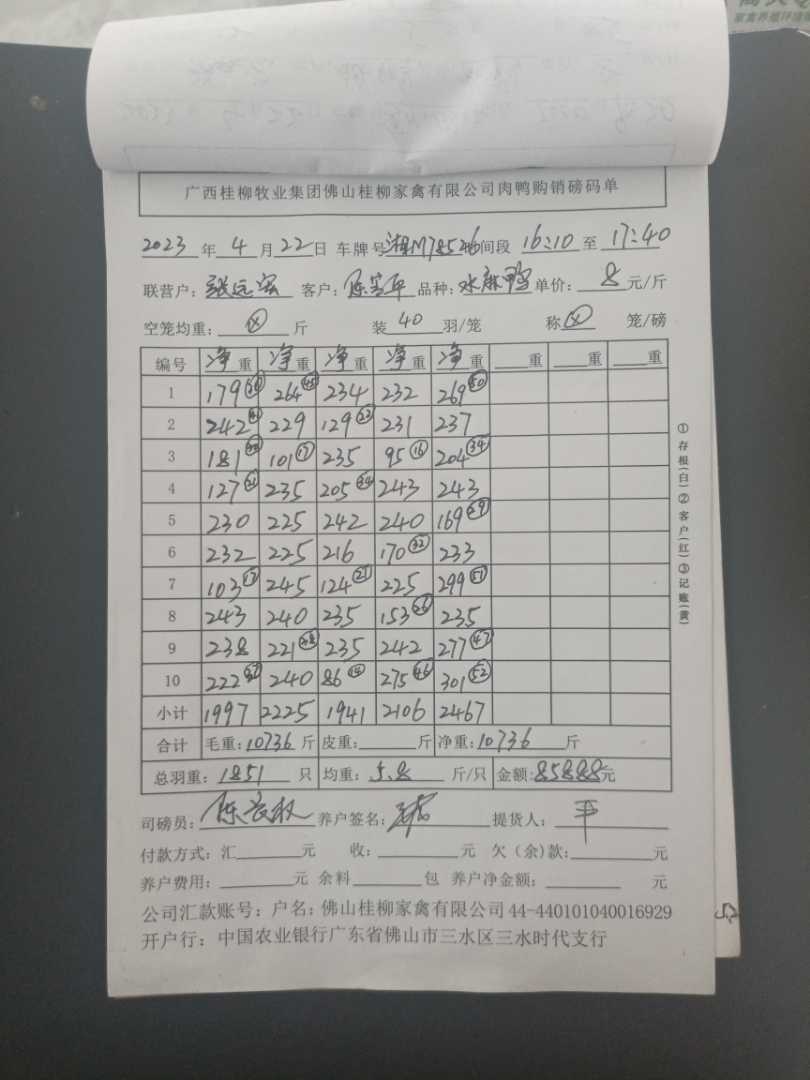 家禽养殖环境
广西桂柳牧业集团佛山桂柳家禽有限公司肉鸭购销磅码单
2023 年 4 月 22 日 车牌号 湘M78526 时间段 16:10 至 17:40
联营户: 张远宏 客户: 陈 平 品种: 水麻鸭 单价: 8 元/斤
空笼均重: 斤 装 40 羽/笼 称 笼/磅
编号 净重 净重 净重 净重 净重 重 重 重
1 179 264 234 232 269 50
2 242 229 129 23 231 237
3 181 101 17 235 95 16 204 34
4 127 21 235 205 34 243 243
5 230 225 242 240 169 29
6 232 225 216 170 32 233
7 103 17 245 124 21 225 299 51
8 243 240 235 153 26 235
9 238 221 38 235 242 277 47
10 222 240 86 14 275 46 301 52
小计 1997 2225 1941 2106 2467
合计 毛重: 10736 斤 皮重: 斤 净重: 10736 斤
总羽重: 1851 只 均重: 5.8 斤/只 金额: 85888元
司磅员: 陈 权 养户签名: 提货人: 平
付款方式: 汇 元 收: 元 欠(余)款: 元
养户费用: 元 余料 包 养户净金额: 元
公司汇款账号: 户名: 佛山桂柳家禽有限公司 44-440101040016929
开户行: 中国农业银行广东省佛山市三水区三水时代支行
①存根(白)②客户(红)③记账(黄)